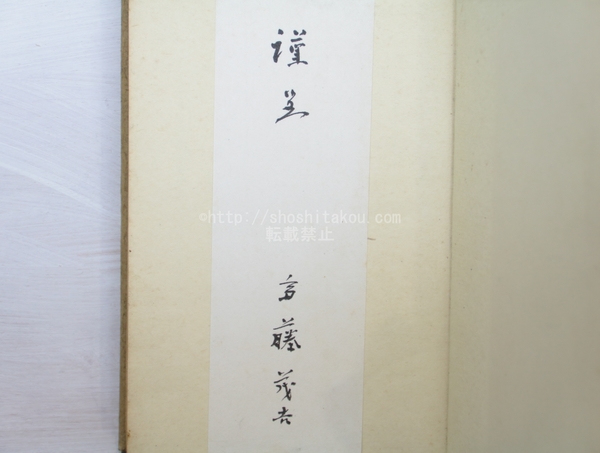 謹呈
斎藤茂吉
©http://shoshitakou.com
転載禁止